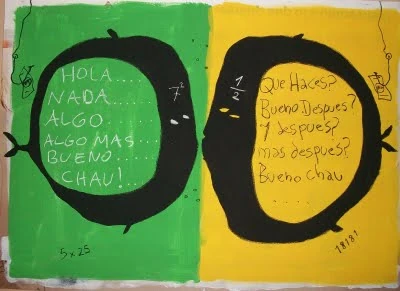 HOLA.....
NADA.......
ALGO......
ALGO MAS....
BUENO......
CHAU!....
7²
5x25
1/2
Que Haces?
Bueno Despues?
y despues?
mas despues?
Bueno chau
....
18181